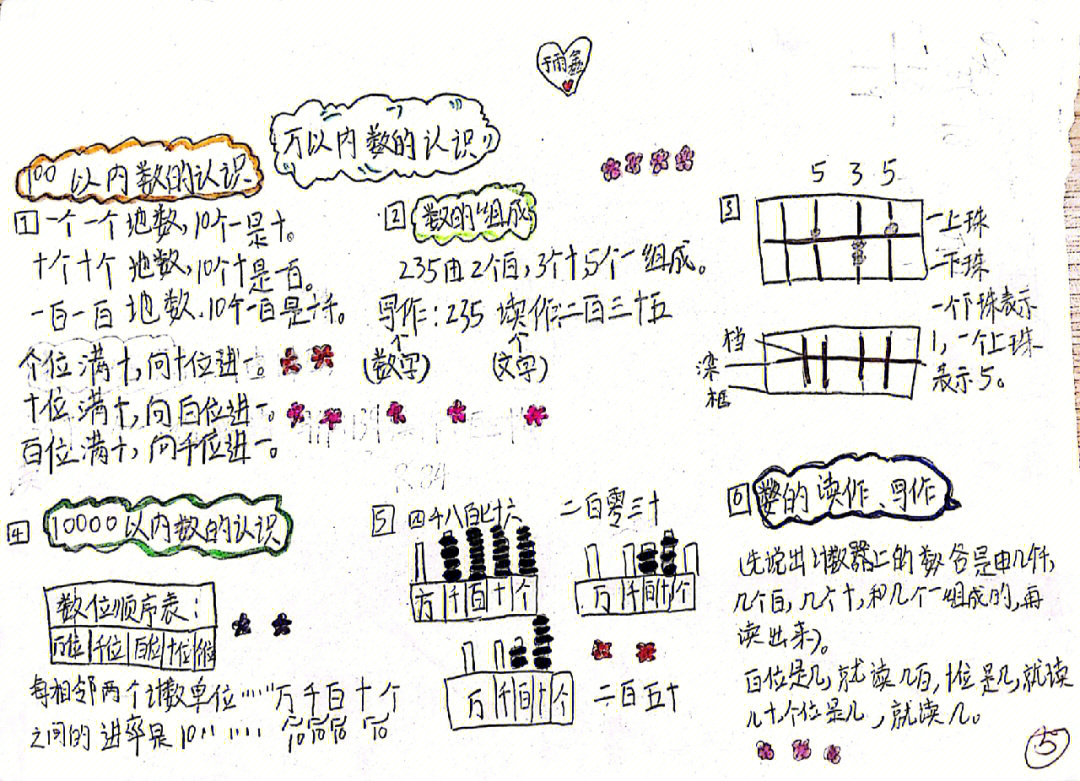 于雨鑫
万以内数的认识
100以内数的认识
1 一个一个地数,10个一是十。
十个十个地数,10个十是一百。
一百一百地数.10个一百是一千。
个位满十,向十位进一。
十位满十,向百位进一。
百位满十,向千位进一。
2 数的组成
235由2个百,3个十,5个一组成。
写作:235 读作:二百三十五
(数字) (文字)
3
5 3 5
上珠
下珠
一个下珠表示
1,一个上珠
表示5。
档
梁
框
4 10000以内数的认识
数位顺序表:
万位 千位 百位 十位 个位
每相邻两个计数单位……万千百十个
之间的进率是10…… 10 10 10 10
5 四千八百七十六
万 千 百 十 个
二百零三十
万 千 百 十 个
万 千 百 十 个
二百五十
6 数的读作、写作
(先说出计数器上的数各是由几个千,
几个百,几个十,和几个一组成的,再
读出来)。
百位是几,就读几百,十位是几,就读
几十,个位是几,就读几。
5